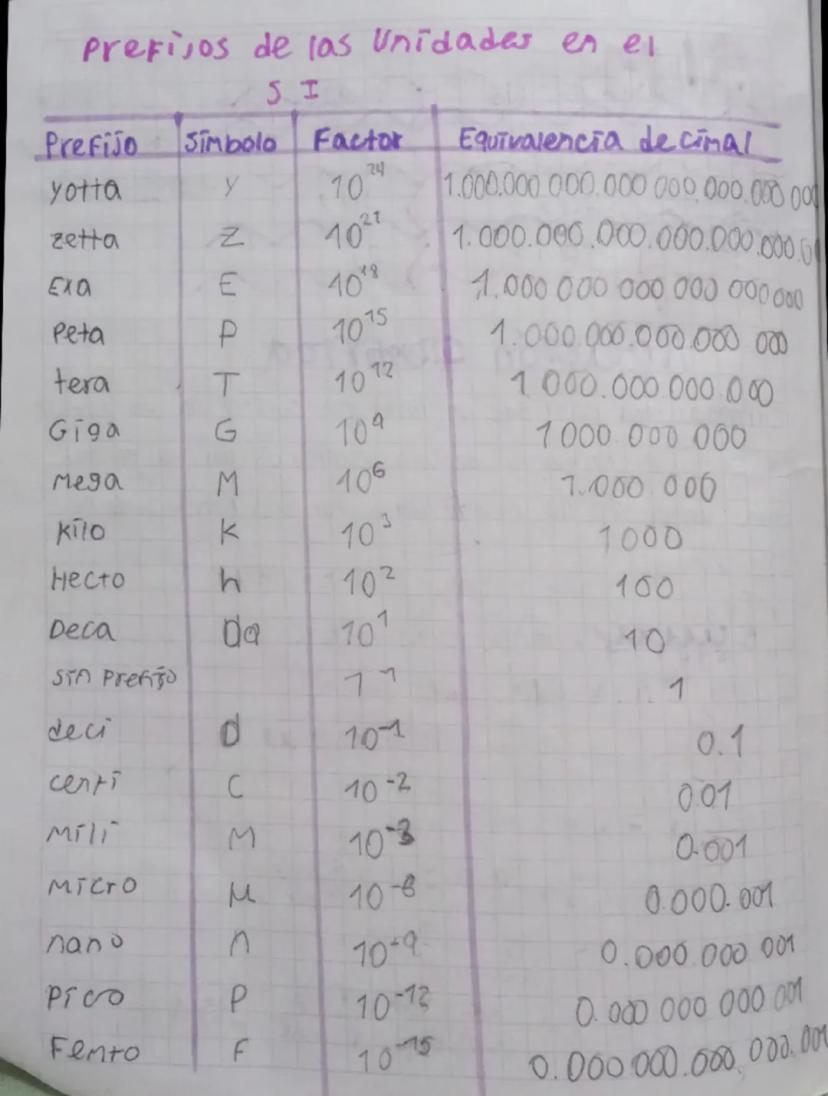 Prefijos de las Unidades en el
S I
Prefijo Símbolo Factor Equivalencia decimal
yotta Y 10^24 1.000.000 000.000 000.000.000.000 000
zetta Z 10^21 1.000.000.000.000.000.000.0
Exa E 10^18 1.000 000 000 000 000 000
Peta P 10^15 1.000.000.000.000 000
tera T 10^12 1 000.000.000.000
Giga G 10^9 1000 000 000
Mega M 10^6 1.000 000
Kilo K 10^3 1000
Hecto h 10^2 100
Deca Da 10^1 10
sin Prefijo 1^-1 1
deci d 10^-1 0.1
centi C 10^-2 001
Mili M 10^-3 0.001
Micro μ 10^-6 0.000.001
nano n 10^-9 0.000 000 001
Pico P 10^-12 0.000 000 000 001
Femto F 10^-15 0.000 000.000,000.001